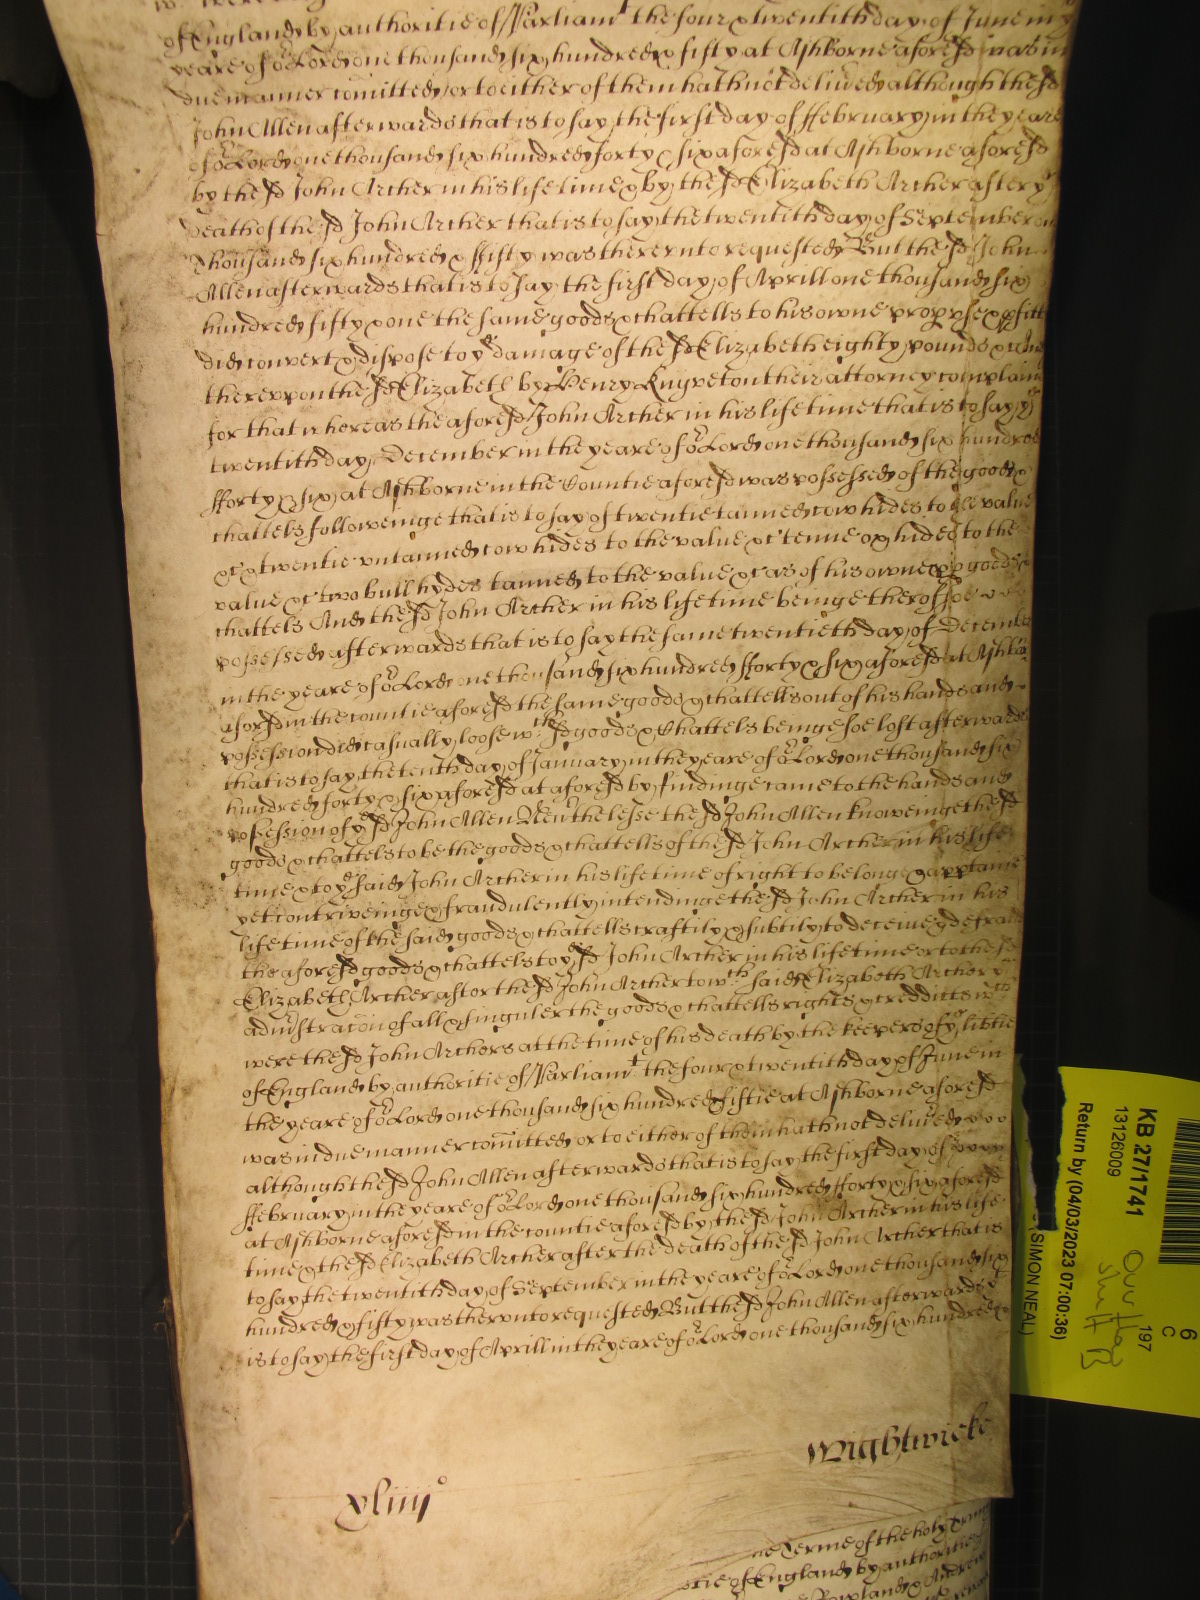 of England by authoritie of Parliamt the four & twentith day of June in y
yeare of or Lord one thousand six hundred & fifty at Ashborne aforesd was in
due manner comitted or to either of them hath not delived although the sd
John Allen afterwards that is to say the first day of ffebruary in the yeare
of or Lord one thousand six hundred forty & six aforesd at Ashborne aforesd
by the sd John Archer in his life time & by the sd Elizabeth Archer after ye
death of the sd John Archer that is to say the twentith day of September on
thousand six hundred & ffifty was thereunto requested But the sd John
Allen afterwards that is to say the first day of Aprill one thousand six
hundred fifty & one the same goods & chattells to his owne proper use & pfitt
did convert & dispose to ye damage of the sd Elizabeth eighty pounds &
thereupon the sd Elizabeth by Henry Kngveton their attorney complaine
for that whereas the aforesd John Archer in his life time that is to say ye
twentith day December in the yeare of or Lord one thousand six hundred
fforty & six at Ashborne in the Countie aforesd was possessed of the goods &
chattels followeinge that is to say of twentie tanned cow hides to the value
&c & twentie untanned cow hides to the value &c tenne ox hides to the
value &c two bull hydes tanned to the value &c as of his owne pp goods &
chattels And the sd John Archer in his life time beinge therof soe
possessed afterwards that is to say the same twentieth day of December
in the yeare of or Lord one thousand six hundred fforty & six aforesd at Ashbor
aforsd in the countie aforesd the same goods & chattells out of his hands and
possession did casually loose wch sd goods & Chattels beinge soe lost afterwards
that is to say the tenth day of January in the yeare of or Lord one thousand six
hundred forty & six aforesd at aforesd by findinge came to the hands and
possession of ye sd John Allen Neuthelesse the sd John Allen knoweinge the sd
goods & chattels to be the goods & chattells of the sd John Archer in his life
time & to ye said John Archer in his life time of right to belong & apptaine
yet contriveinge & fraudulently intendinge the sd John Archer in his
life time of the said goods & chattells craftily & subtily to deceive & defraud
the aforesd goods & chattels to ye sd John Archer in his life time or to the sd
Elizabeth Archer after the sd John Archer to wch said Elizabeth Archer ye
admstracon of all & singuler the goods & chattells rights & credditts wch
were the sd John Archers at the time of his death by the keepers of ye libtie
of England by authoritie of Parliamt the four & twentith day of June in
the yeare of or Lord one thousand six hundred fiftie at Ashborne aforesd
was in due manner comitted or to either of them hath not delived
although the sd John Allen afterwards that is to say the first day of
ffebruary in the yeare of or Lord one thousand six hundred fforty & six aforesd
at Ashborne aforesd in the countie aforesd by the sd John Archer in his life
time & the sd Elizabeth Archer after the death of the sd John Archer that is
to say the twentith day of September in the yeare of or Lord one thousand six
hundred & fifty was therunto requested But the sd John Allen afterwards yt
is to say the first day of Aprill in the yeare of or Lord one thousand six hundred
Wightwicke
xliiijo
Terme of the holy
of England by authoritie
Rowland & Andrew
KB 27/1741
13126009
Return by (04/03/2023 07:00:36)
(SIMON NEAL)
6
C
197